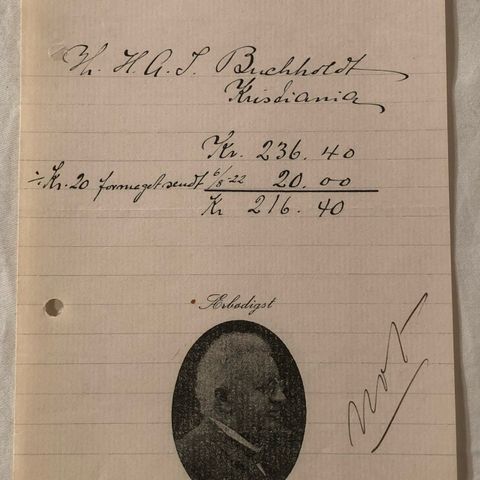 Hr. H. A. J. Buchholdt
Kristiania
Kr. 236. 40
÷ Kr. 20 formeget sendt 6/8-22 20. 00
Kr 216. 40
Ærbødigst